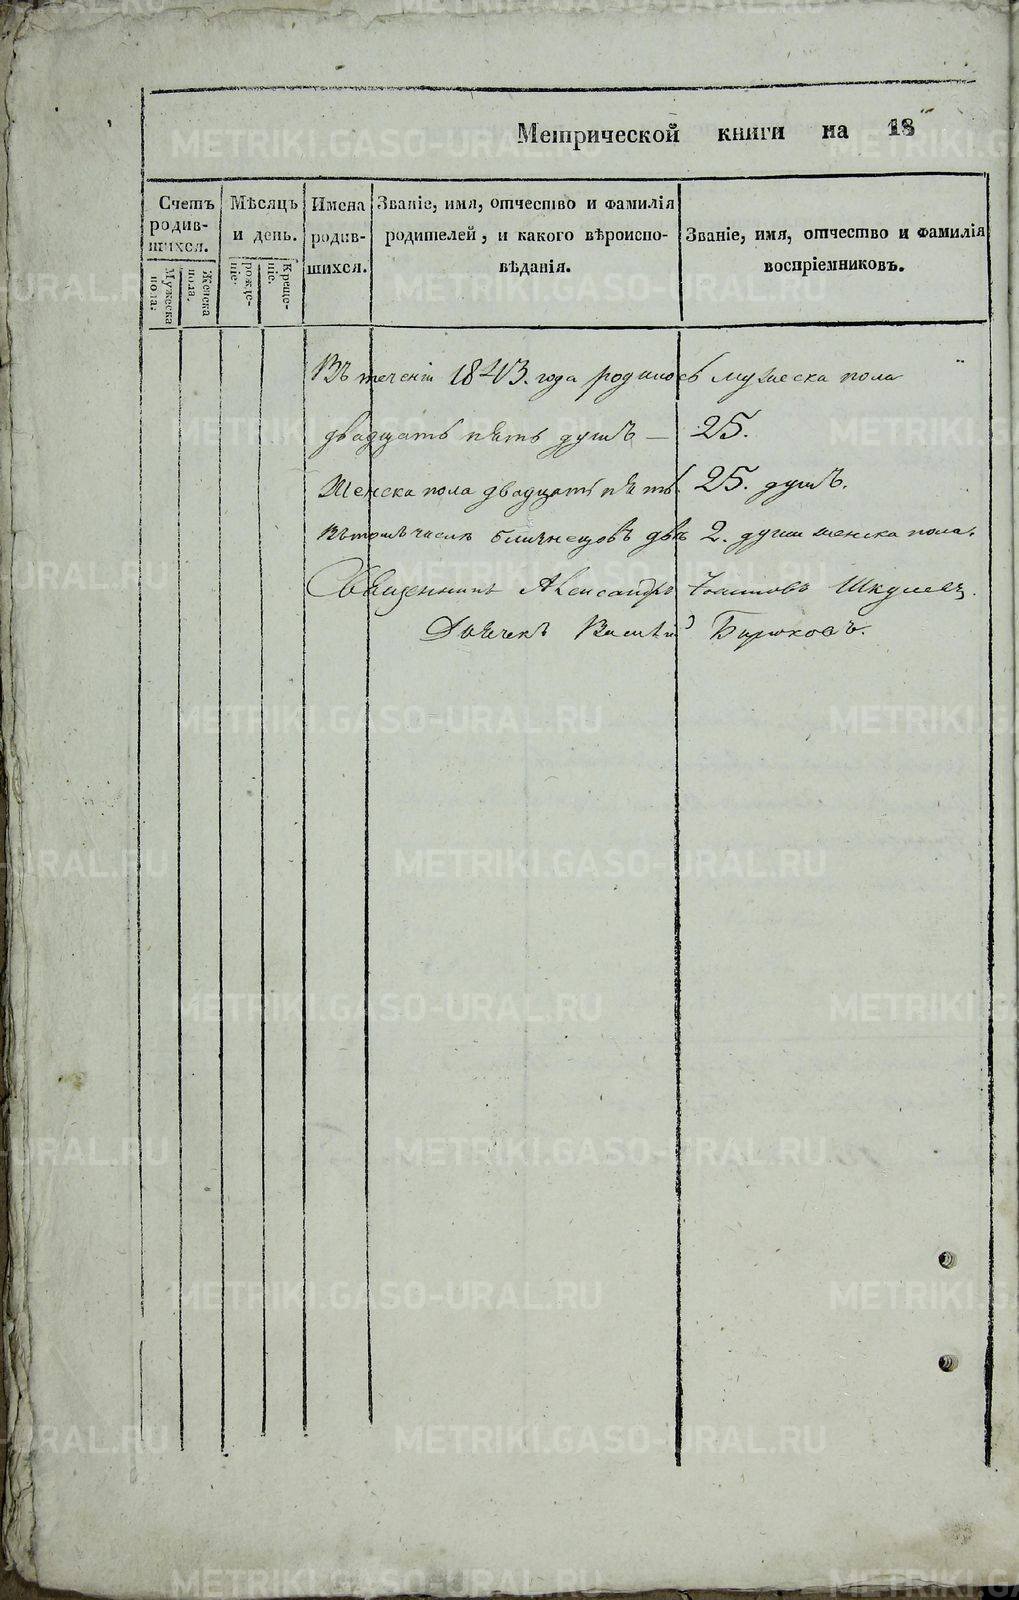 Метрической книги на 18
Счетъ родив-шихся.
Мужеска пола.
Женска пола.
Мѣсяцъ и день.
рожде-ніе.
Креще-ніе.
Имена родив-шихся.
Званіе, имя, отчество и фамилія родителей, и какого вѣроиспо-вѣданія.
Званіе, имя, отчество и фамилія воспріемниковъ.
Въ теченіи 1843. года родилось мужеска пола
двадцать пять душъ — 25.
Женска пола двадцать пять 25. душъ.
Въ томъ числѣ близнецовъ двѣ 2. души женска пола.
Священникъ Александръ Іоанновъ
Дьячекъ Василій Бирюковъ.
METRIKI.GASO-URAL.RU